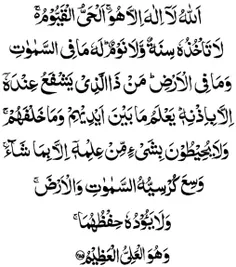 اَللّٰهُ لَآ اِلٰهَ اِلَّا هُوَ ۚ اَلْحَیُّ الْقَیُّوْمُ ۚ۬
لَا تَاْخُذُهٗ سِنَةٌ وَّلَا نَوْمٌ ؕ لَهٗ مَا فِی السَّمٰوٰتِ
وَمَا فِی الْاَرْضِ ؕ مَنْ ذَا الَّذِیْ یَشْفَعُ عِنْدَهٗۤ
اِلَّا بِاِذْنِهٖ ؕ یَعْلَمُ مَا بَیْنَ اَیْدِیْهِمْ وَمَا خَلْفَهُمْ ۚ
وَلَا یُحِیْطُوْنَ بِشَیْءٍ مِّنْ عِلْمِهٖۤ اِلَّا بِمَا شَآءَ ۚ
وَسِعَ كُرْسِیُّهُ السَّمٰوٰتِ وَالْاَرْضَ ۚ
وَلَا یَـُٔوْدُهٗ حِفْظُهُمَا ۚ
وَهُوَ الْعَلِیُّ الْعَظِیْمُ ﴿۲۵۵﴾